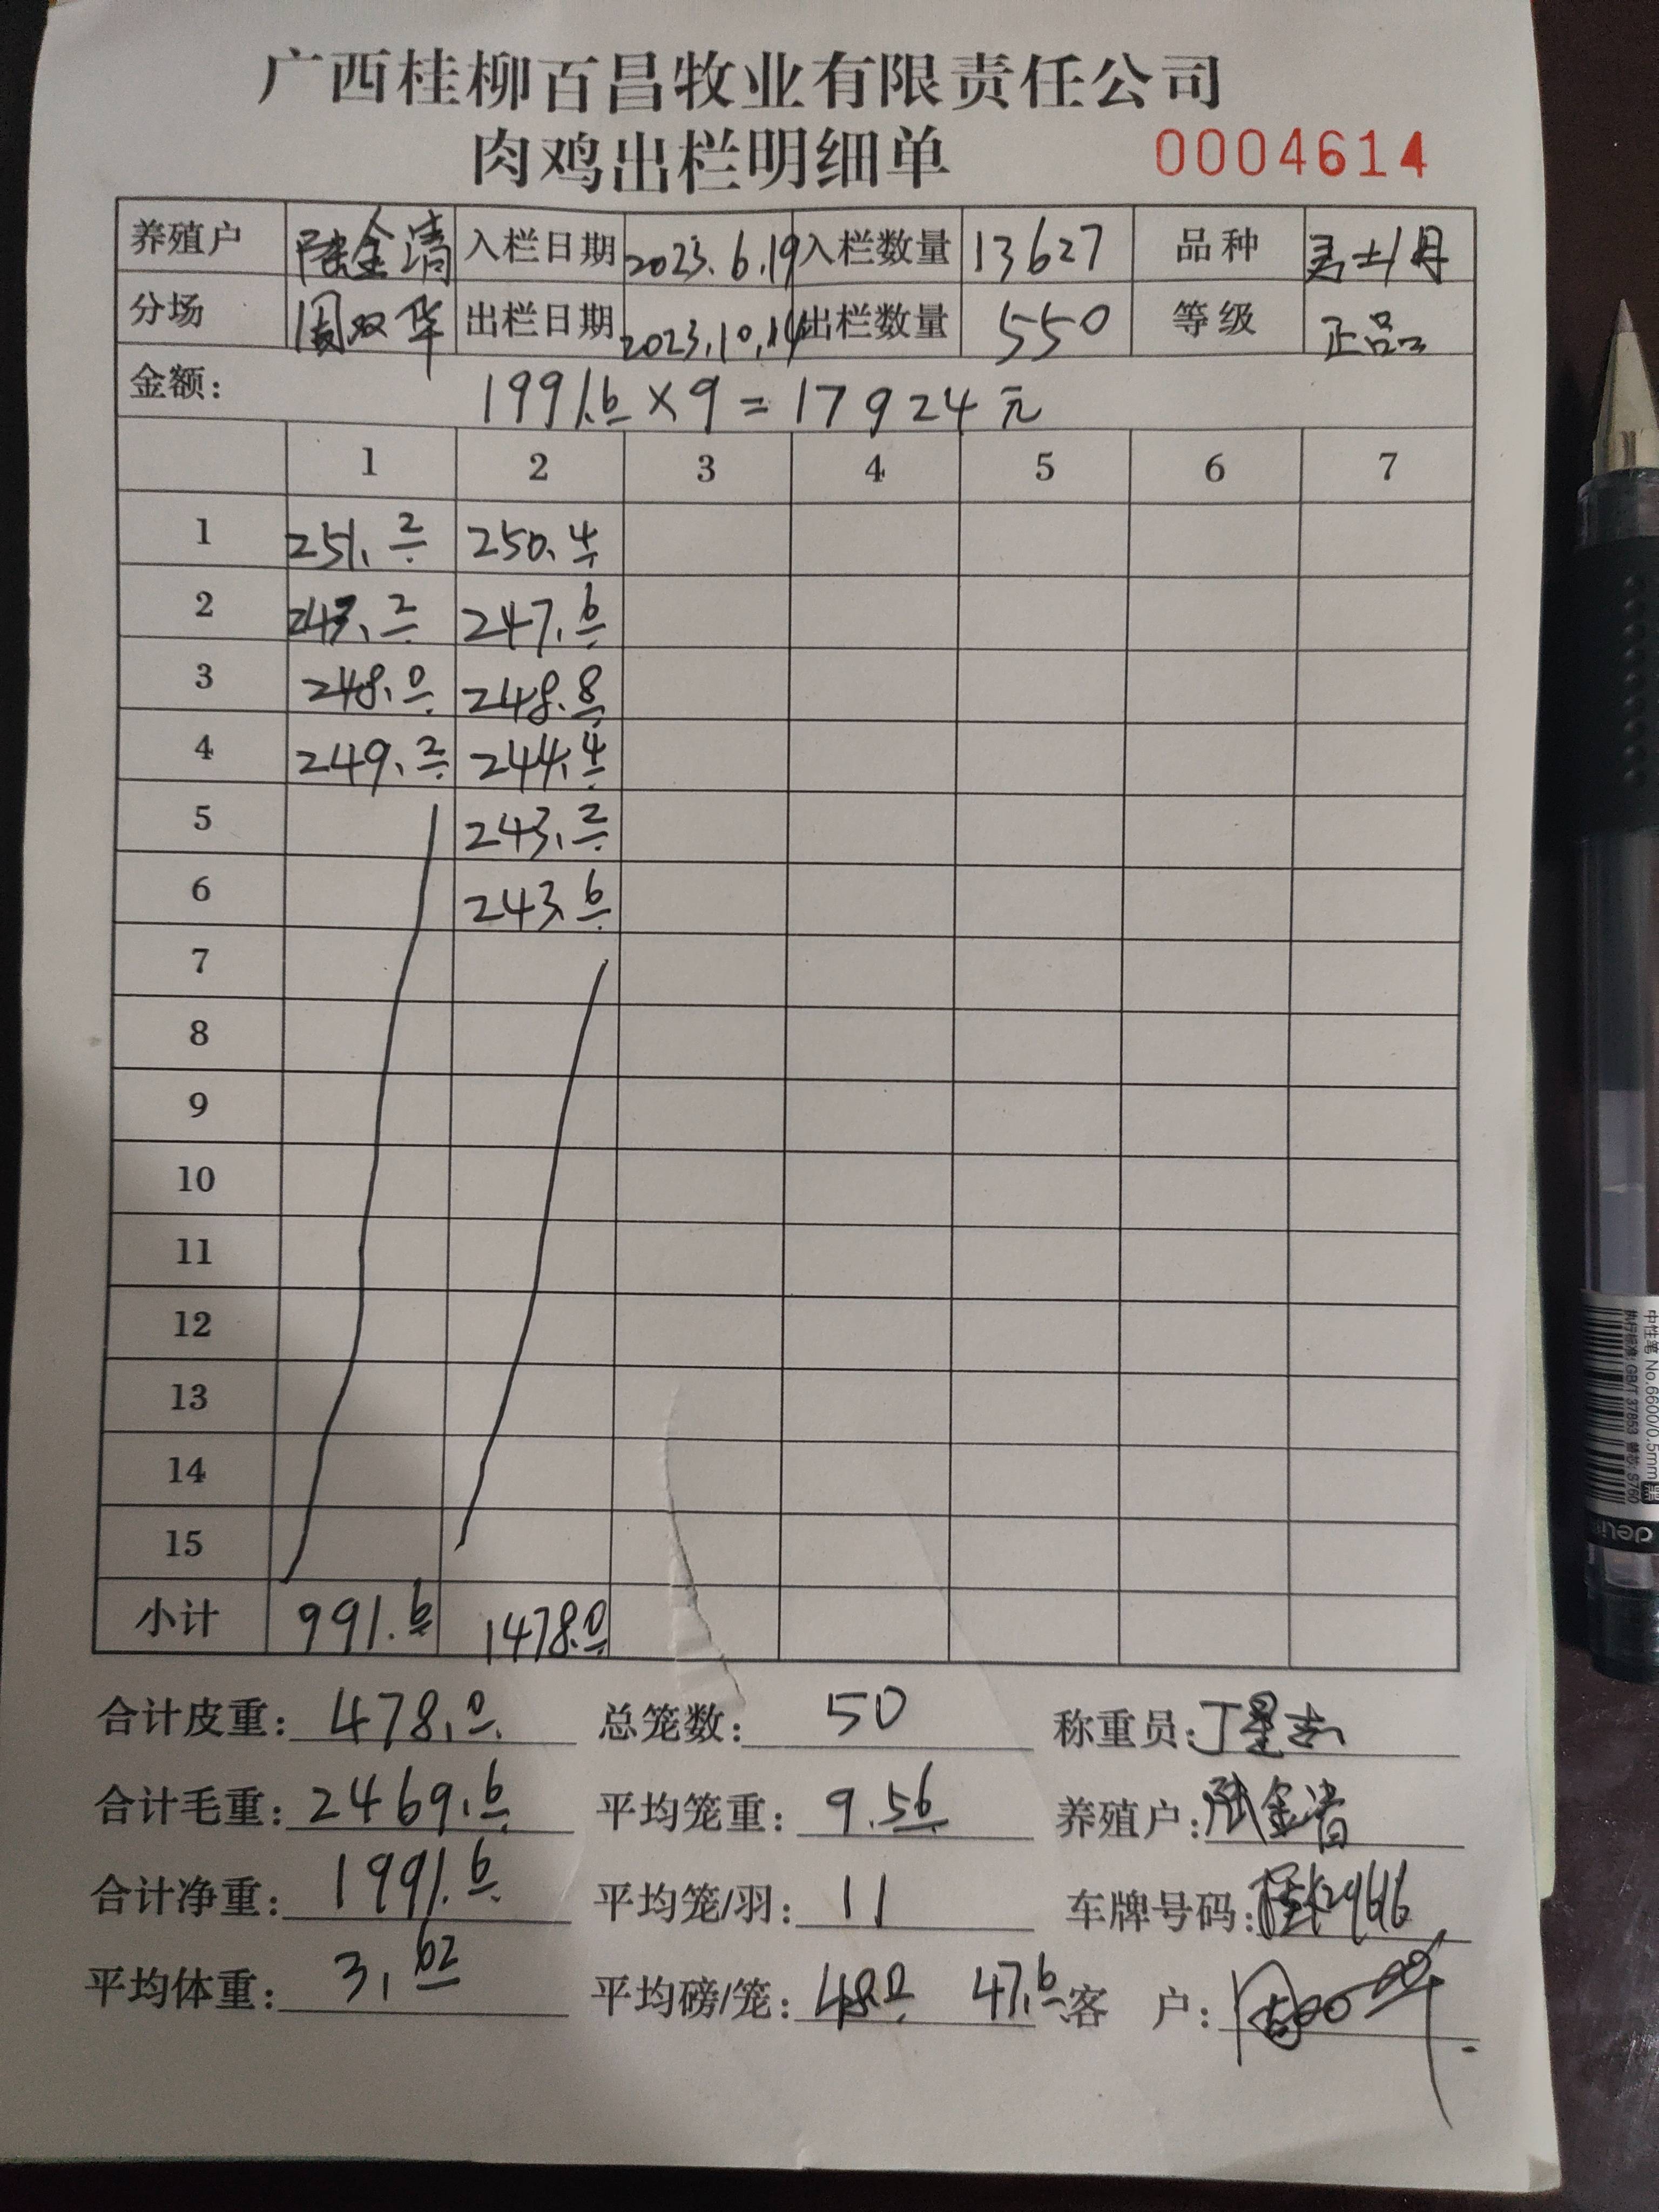 广西桂柳百昌牧业有限责任公司
肉鸡出栏明细单 0004614
养殖户 陆金清 入栏日期 2023.6.19 入栏数量 13627 品种
分场 周双华 出栏日期 2023.10.14 出栏数量 550 等级 正品
金额: 1991.6×9=17924元
1 2 3 4 5 6 7
1 251.2 250.4
2 243.2 247.6
3 248.0 248.8
4 249.2 244.4
5 243.2
6 243.6
7
8
9
10
11
12
13
14
15
小计 991.6 1478.0
合计皮重: 478.0 总笼数: 50 称重员:
合计毛重: 2469.6 平均笼重: 9.56 养殖户: 陆金清
合计净重: 1991.6 平均笼/羽: 11 车牌号码:
平均体重: 3.62 平均磅/笼: 48.0 47.6 客 户:
中性笔 No.6600/0.5mm 黑
执行标准: GB/T 37853 替芯: S760
deli